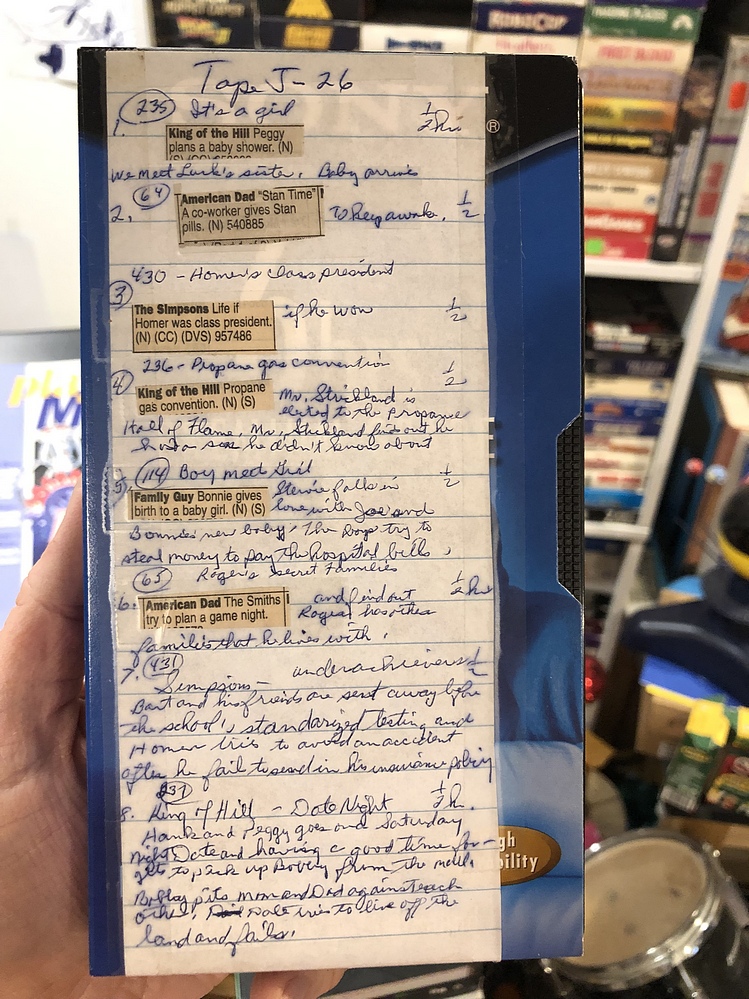 ROBOCOP
TRADING PLACES
FIRST BLOOD
Tape J-26
235 It's a girl
1. King of the Hill Peggy ½ hr
plans a baby shower. (N)
we meet Lucky's sister. Baby arrives
64
2. American Dad "Stan Time"
A co-worker gives Stan to keep awake. ½
pills. (N) 540885
430 - Homer's class president
3
The Simpsons Life if if he won ½
Homer was class president.
(N) (CC) (DVS) 957486
236 - Propane gas convention ½
4 King of the Hill Propane Mr. Strickland is
gas convention. (N) (S) elected to the propane
Hall of Flame, Mr. Strickland finds out he
had a son he didn't know about
5 114 Boy meet Grill ½
Family Guy Bonnie gives Stewie falls in
birth to a baby girl. (N) (S) love with Joe and
Bonnie's new baby. The boys try to
steal money to pay the hospital bills.
65 Roger's Secret Families
6. American Dad The Smiths and find out ½ hr
try to plan a game night. Roger has other
families that he lives with.
7. 431
Simpsons - underachievers ½
Bart and his friends are sent away before
the school's standarized testing and
Homer tris to avoid an accident
after he fail to send in his insurance policy
237
8. King of Hill - Date Night ½ h.
Hank and Peggy goes on a Saturday
night Date and having a good time for-
gets to pick up Bobby from the mall.
Bobby pits Mom and Dad against each
other. Dale tries to live off the
land and fails.
gh
bility
®